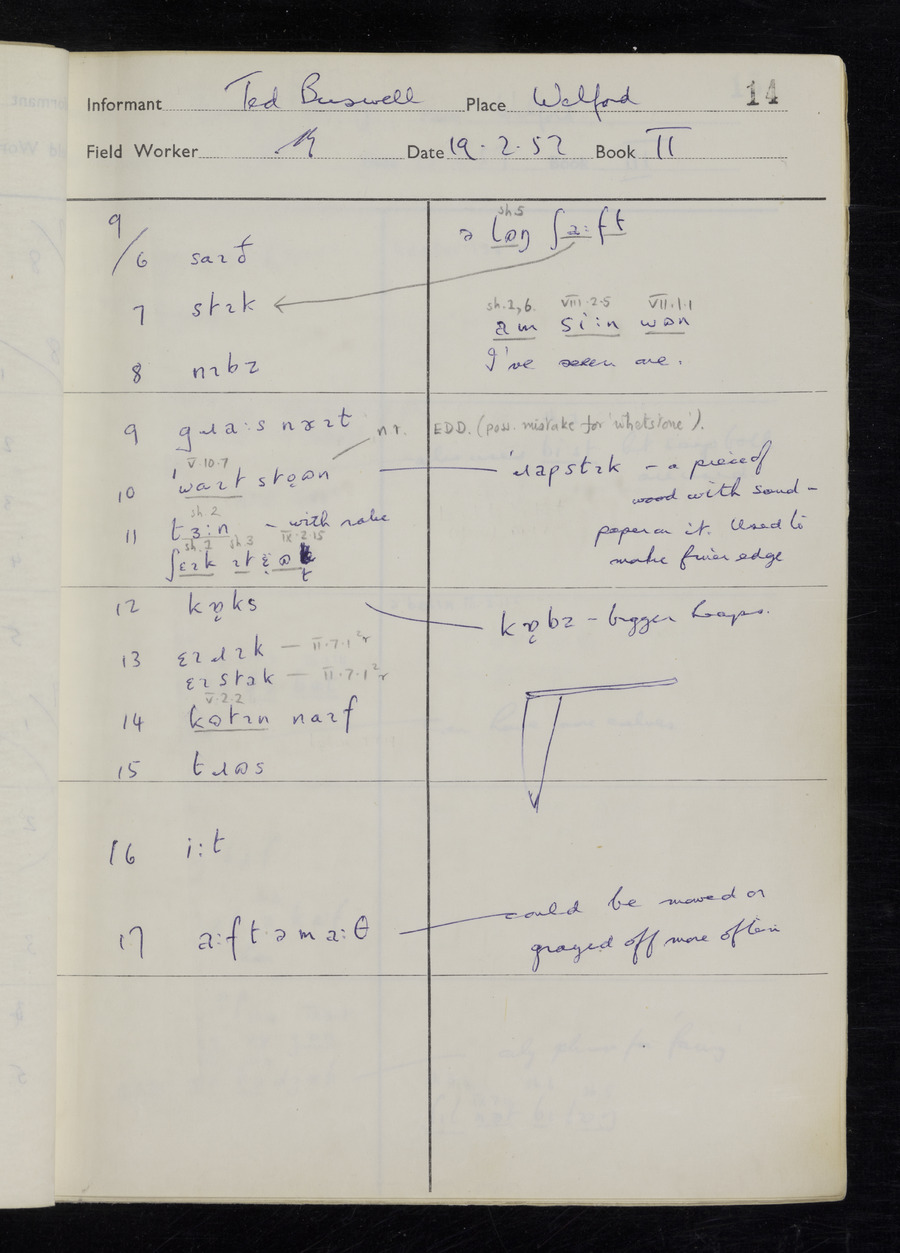 14
Informant Ted Buswell Place Welford
Field Worker Date 19.2.52 Book II
9
/6 saɪð
7 stɪk
8 nɪbz
ə lɒŋ ʃaːft
sh.5
sh.2,6. VIII.2.5 VII.1.1
am siːn wɒn
I've seen one.
9 gɹaːs
n.r. EDD. (poss. mistake for 'whetstone').
V.10.7
10
ˈɹapstɪk – a piece of
wood with sand-
paper on it. Used to
make finer edge
sh.2
11 tɜːn – with rake
sh.2 sh.3 IX.2.15
12
– bigger heaps.
13 ɛɪɹɪk — II.7.1²r
ɛɪstak — II.7.1²r
V.2.2
14 naɪf
15
16 iːt
17 aːftəmaːθ
could be mowed or
grazed off more often